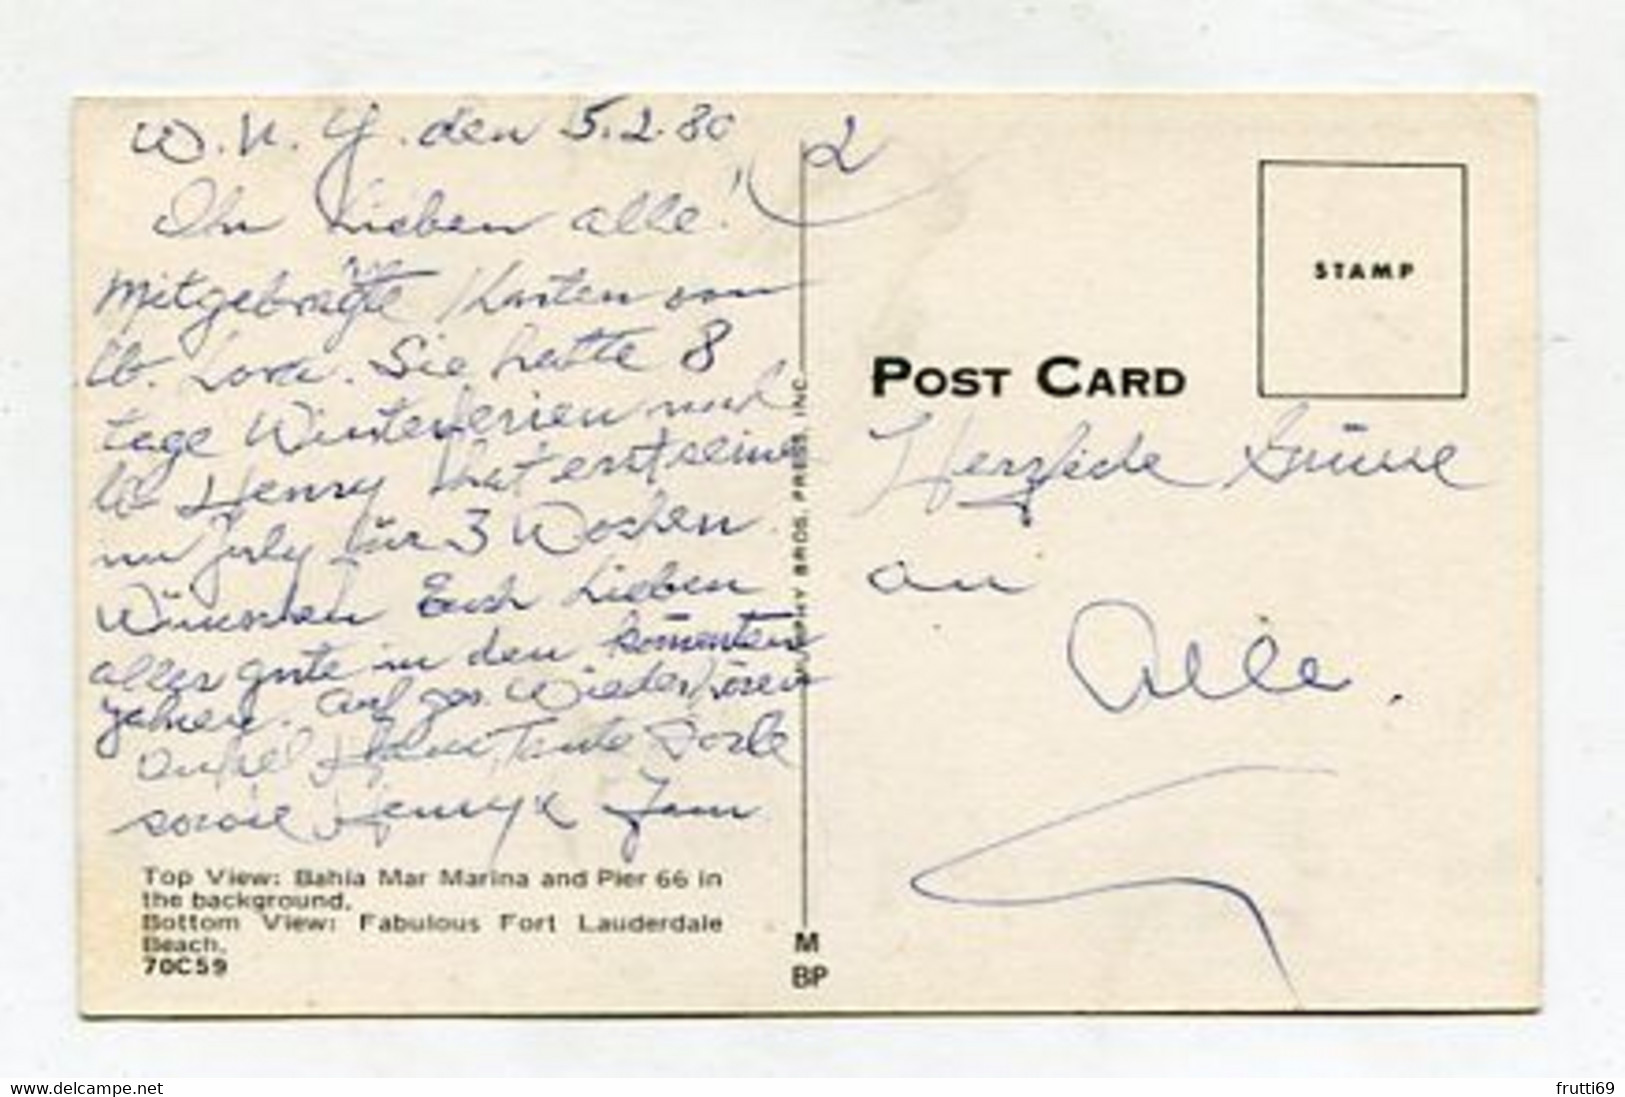 W. N. Y. den 5.2.80
2
Ihr Lieben alle!
Mitgebragte Karten von
lb. Lora. Sie hatte 8
tage Winterferien und
lb Henry hat erst seine
im July für 3 Wochen.
Wünschen Euch Lieben
alles gute in den kommenten
Jahren. Auf ges. Wiederhören
Onkel Hans Tante Dorle
sowie Henry &
Herzliche Grüsse
an
Alle.
POST CARD
STAMP
MURPHY BROS. PRESS, INC.
Top View: Bahia Mar Marina and Pier 66 in
the background.
Bottom View: Fabulous Fort Lauderdale
Beach.
70C59
M
BP
www.delcampe.net
frutti69